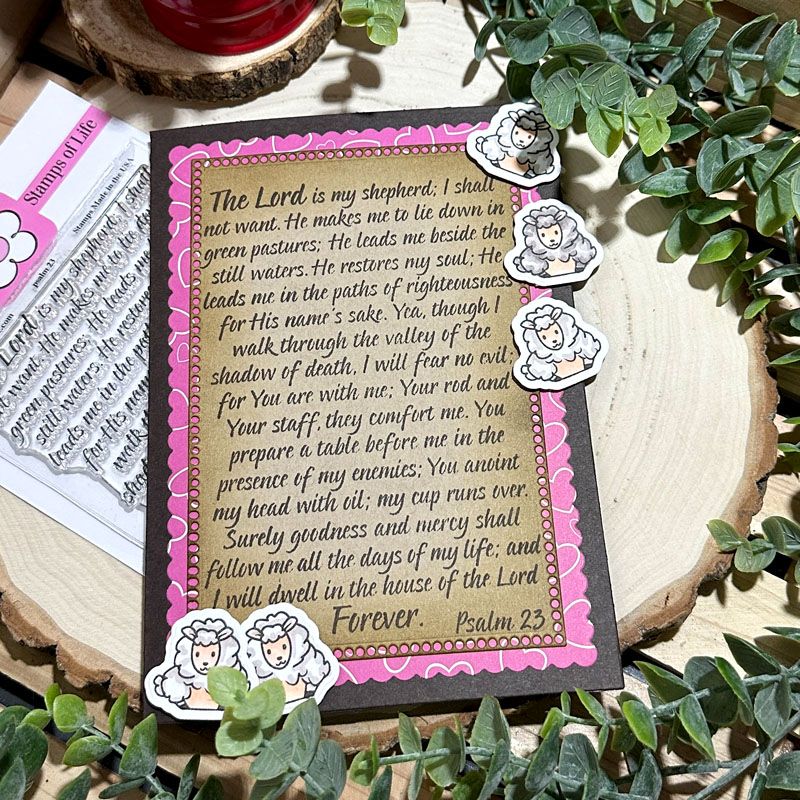 The Lord is my shepherd; I shall
not want. He makes me to lie down in
green pastures; He leads me beside the
still waters. He restores my soul; He
leads me in the paths of righteousness
for His name's sake. Yea, though I
walk through the valley of the
shadow of death, I will fear no evil;
for You are with me; Your rod and
Your staff, they comfort me. You
prepare a table before me in the
presence of my enemies; You anoint
my head with oil; my cup runs over.
Surely goodness and mercy shall
follow me all the days of my life; and
I will dwell in the house of the Lord
Forever. Psalm 23
Stamps of Life
Stamps Made in the USA
psalm 23
.com
Lord is my shepherd; I shall
want. He makes me to lie
green pastures; He leads me
still waters. He restore
leads me in the pa
for His nam
walk
shad